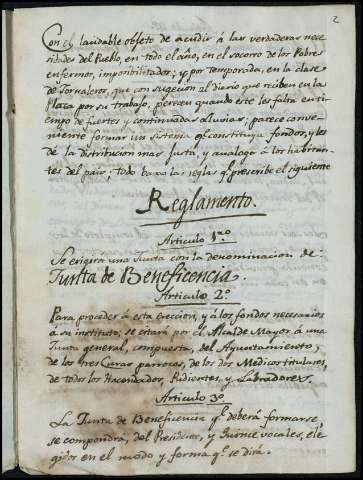 2
Con el laudable objeto de acudir á las verdaderas nece
sidades del Pueblo, en todo el año, en el socorro de los Pobres
enfermos, imposibilitados; y por temporada, en la clase
de Jornaleros, que con sugecion al diario que reciben en la
Plaza por su trabajo, perecen quando este les falta en ti-
empo de fuertes y continuadas lluvias; parece conve-
niente formar un sistema qe. constituya fondos, y les
dé la distribucion mas justa, y analoga á los habitan-
tes del pais, todo baxo las reglas qe. prescribe el siguiente
Reglamento.
Articulo 1.ro
Se erigira una Junta con la denominacion de:
Junta de Beneficencia.
Articulo 2.o
Para proceder á esta ereccion, y á los fondos necesarios
á su instituto, se citará por el Alcalde Mayor á una
Junta general, compuesta, del Ayuntamiento,
de los tres Curas parrocos, de los dos Medicos titulares,
de todos los Hacendados, Pudientes, y Labradores.
Articulo 3.o
La Junta de Beneficencia qe. deberá formarse,
se compondrá, del Presidente, y vocales, ele
gidos en el modo y forma qe. se dirá.